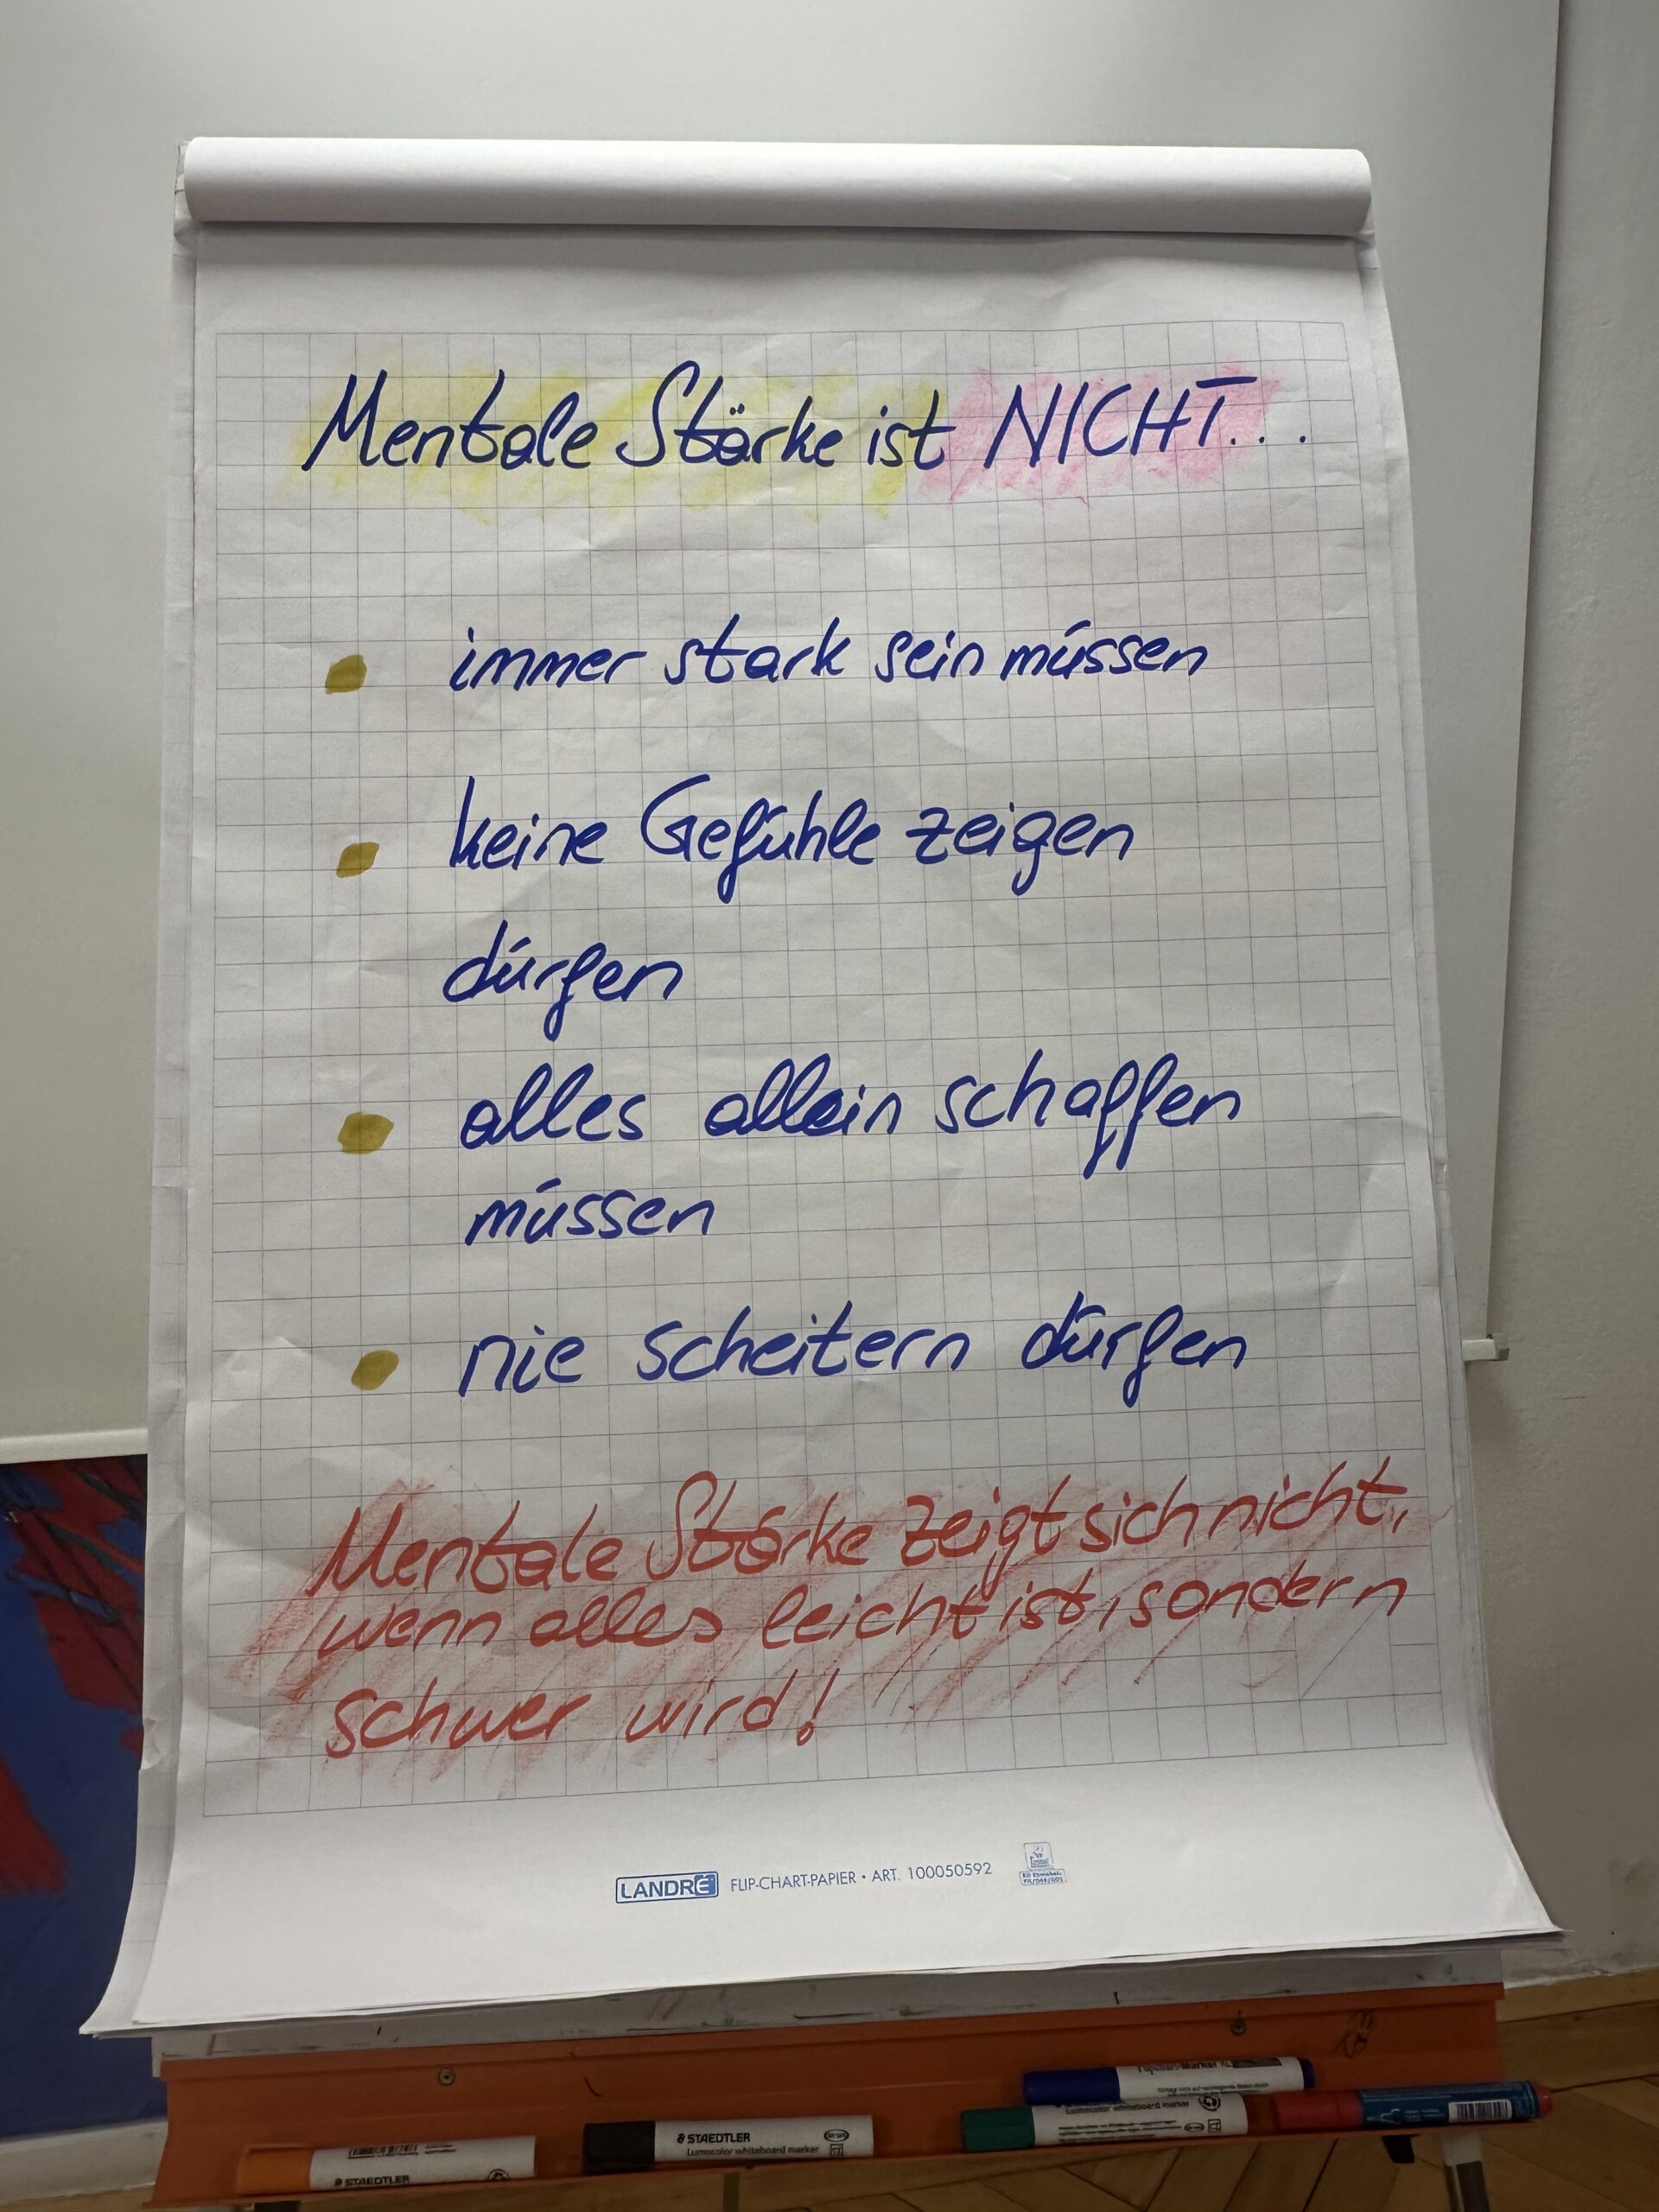 Mentale Stärke ist NICHT...
immer stark sein müssen
keine Gefühle zeigen
dürfen
alles allein schaffen
müssen
nie scheitern dürfen
Mentale Stärke zeigt sich nicht,
wenn alles leicht ist, sondern
schwer wird!
LANDRÉ FLIP-CHART-PAPIER • ART. 100050592
STAEDTLER
Lumocolor whiteboard marker
Lumocolor whiteboard marker
STAEDTLER